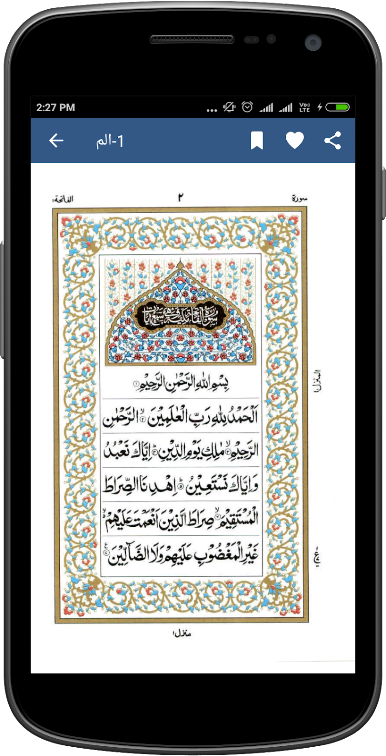 2:27 PM ... Vo) LTE
1-الم
الفاتحة ٢ سورة
بِسْمِ اللهِ الرَّحْمٰنِ الرَّحِيْمِ
اَلْحَمْدُ لِلّٰهِ رَبِّ الْعٰلَمِيْنَ الرَّحْمٰنِ
الرَّحِيْمِ مٰلِكِ يَوْمِ الدِّيْنِ اِيَّاكَ نَعْبُدُ
وَاِيَّاكَ نَسْتَعِيْنُ اِهْدِنَا الصِّرَاطَ
الْمُسْتَقِيْمَ صِرَاطَ الَّذِيْنَ اَنْعَمْتَ عَلَيْهِمْ
غَيْرِ الْمَغْضُوْبِ عَلَيْهِمْ وَلَا الضَّآلِّيْنَ
منزل ١